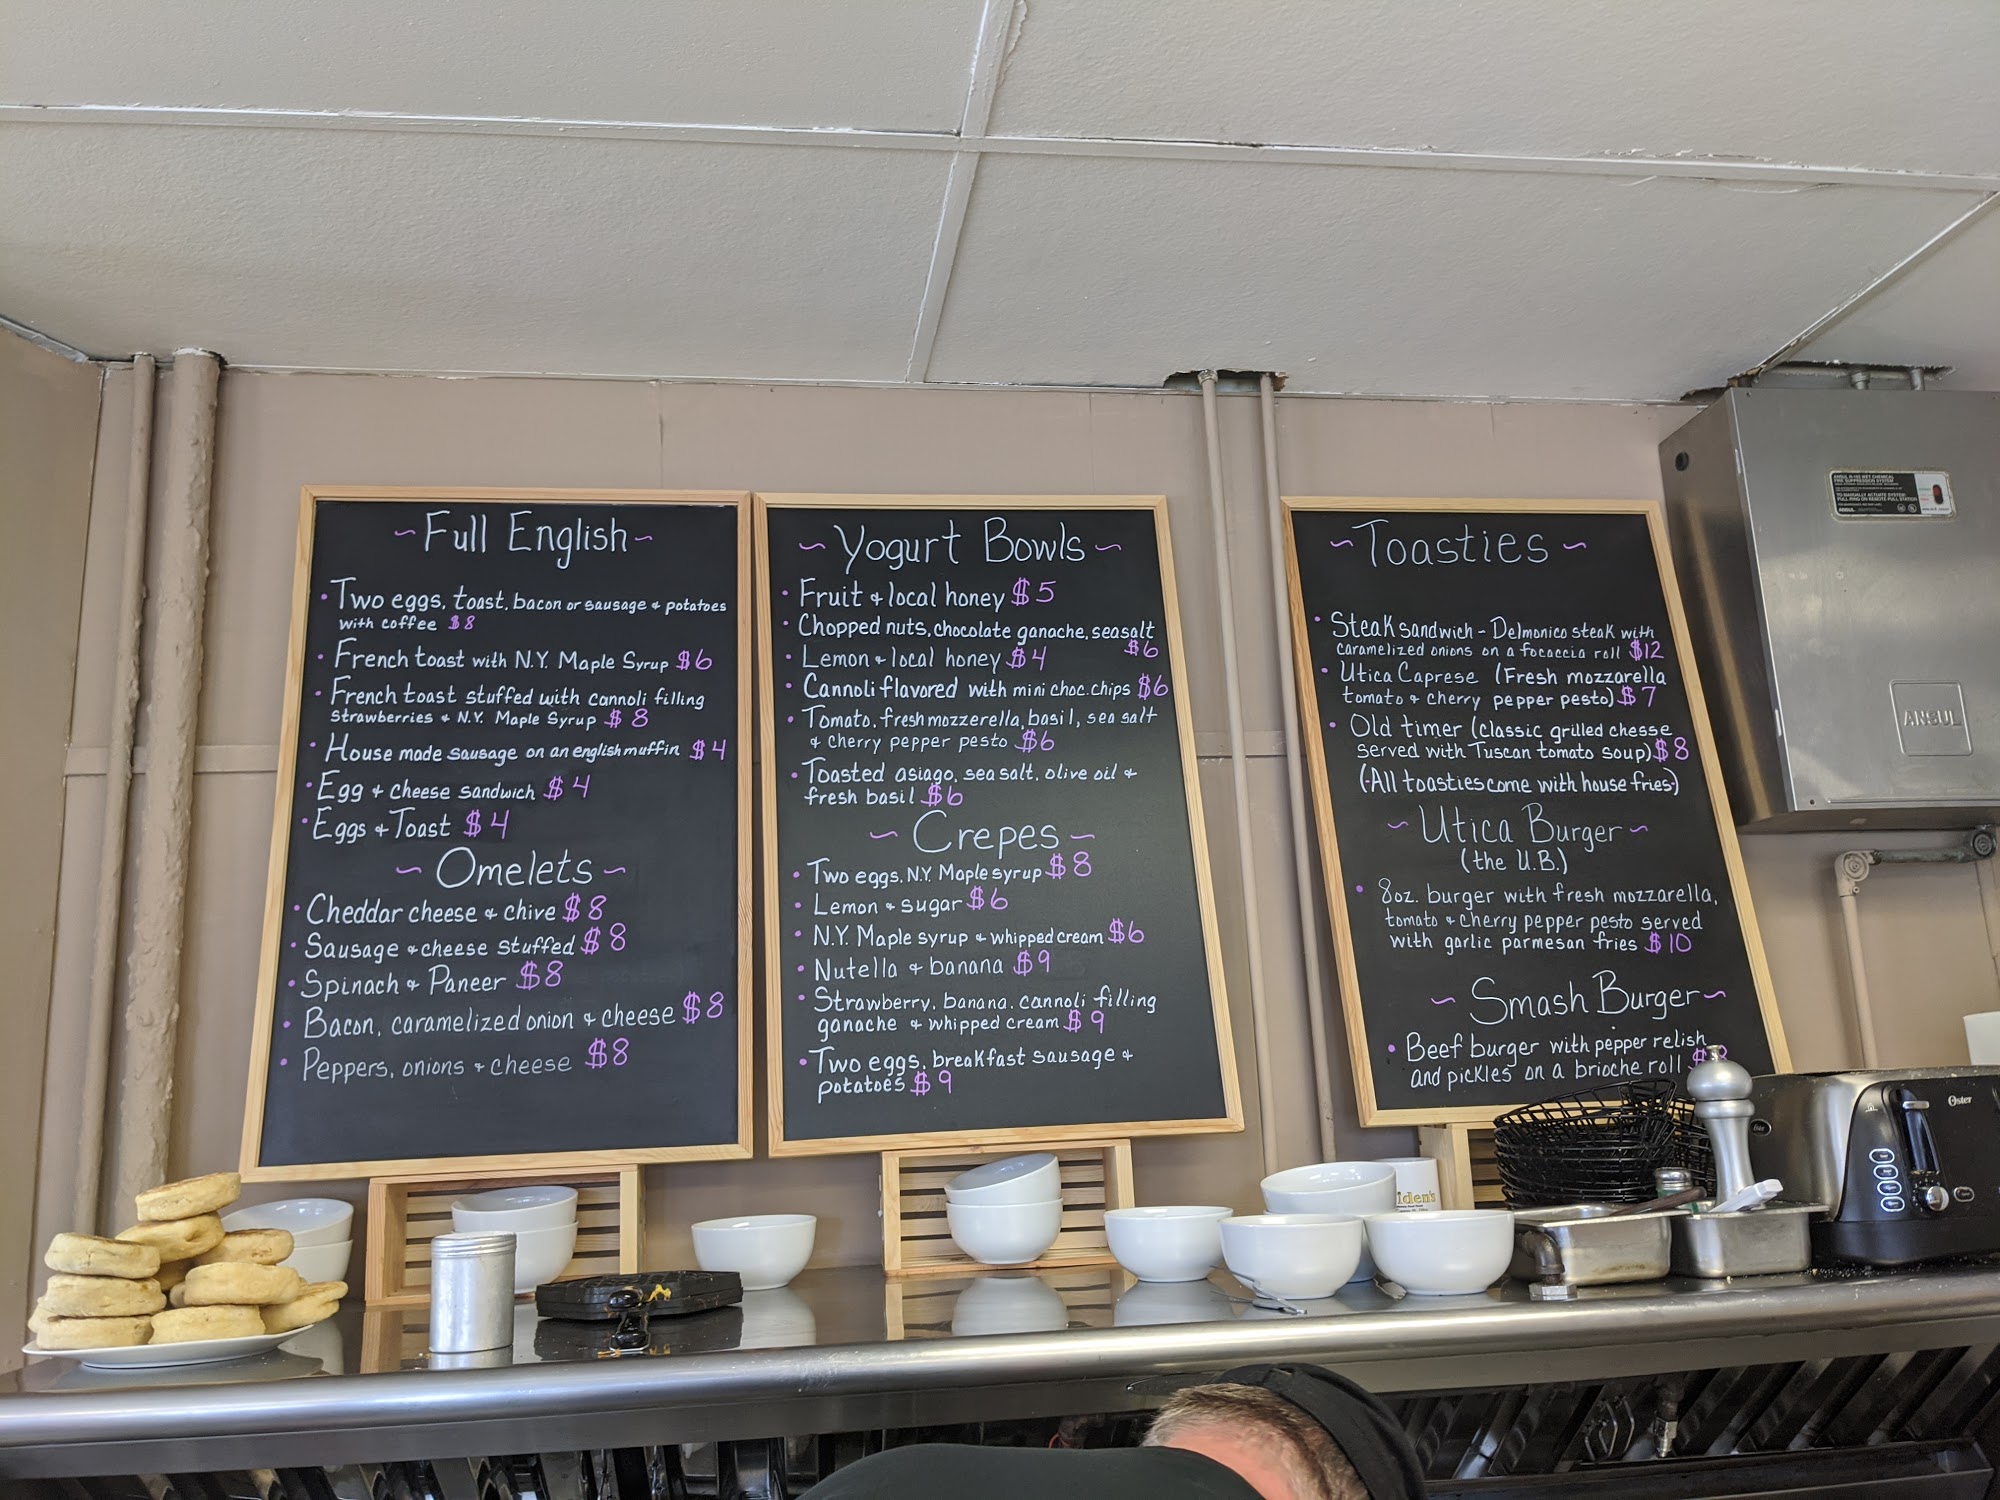 ~Full English~
• Two eggs, toast, bacon or sausage + potatoes
with coffee $8
• French toast with N.Y. Maple Syrup $6
• French toast stuffed with cannoli filling
strawberries + N.Y. Maple Syrup $8
• House made sausage on an english muffin $4
• Egg + cheese sandwich $4
• Eggs + Toast $4
~Omelets~
• Cheddar cheese + chive $8
• Sausage + cheese stuffed $8
• Spinach + Paneer $8
• Bacon, caramelized onion + cheese $8
• Peppers, onions + cheese $8
~Yogurt Bowls~
• Fruit + local honey $5
• Chopped nuts, chocolate ganache, seasalt
$6
• Lemon + local honey $4
• Cannoli flavored with mini choc. chips $6
• Tomato, fresh mozzerella, basil, sea salt
+ cherry pepper pesto $6
• Toasted asiago, sea salt, olive oil +
fresh basil $6
~Crepes~
• Two eggs, N.Y. Maple syrup $8
• Lemon + sugar $6
• N.Y. Maple syrup + whipped cream $6
• Nutella + banana $9
• Strawberry, banana, cannoli filling
ganache + whipped cream $9
• Two eggs, breakfast sausage +
potatoes $9
~Toasties~
• Steak sandwich - Delmonico steak with
caramelized onions on a focaccia roll $12
• Utica Caprese (Fresh mozzarella
tomato + cherry pepper pesto) $7
• Old timer (classic grilled chesse
served with Tuscan tomato soup) $8
(·All toasties come with house fries·)
~Utica Burger~
(the U.B.)
• 8oz. burger with fresh mozzarella,
tomato + cherry pepper pesto served
with garlic parmesan fries $10
~Smash Burger~
• Beef burger with pepper relish
and pickles on a brioche roll
ANSUL R-102 WET CHEMICAL
FIRE SUPPRESSION SYSTEM
TO MANUALLY ACTUATE SYSTEM
PULL RING ON REMOTE PULL STATION
ANSUL
ANSUL
iden's
Oster